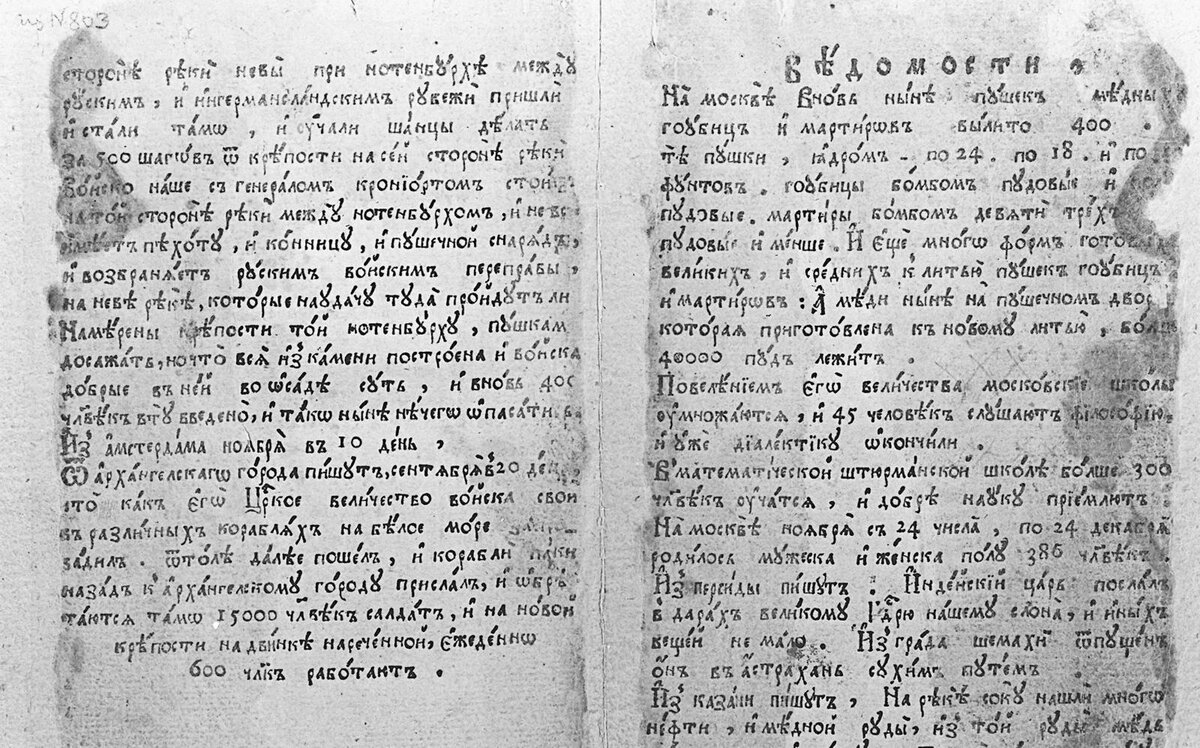 из N 803
сторонѣ рѣки невы̀ при нотенбу́рхѣ междꙋ̀
рꙋ́скимъ, и҆ ингерманла́ндскимъ рꙋбежѝ пришлѝ
и҆ ста́ли та́мѡ, и҆ ᲂу҆ча́ли ша́нцы дѣ́лать
за 500 шагѡ́въ ѿ крѣ́пости на се́й сторонѣ̀ рѣкѝ
во́йско на́ше съ генера́ломъ кронїо́ртомъ
на то́й сторонѣ̀ рѣкѝ междꙋ̀ нотенбꙋ́рхомъ, и҆ не
имѣ́етъ пѣхо́тꙋ, и҆ ко́нницꙋ, и҆ пꙋ́шечной снарѧ́дъ,
и҆ возбранѧ́етъ рꙋ́скимъ во́йскимъ перепра́вы,
на невѣ̀ рѣкѣ̀, кото́рые наꙋда́чꙋ тꙋда̀ про́йдꙋтъ ли
Намѣ́рены крѣ́пости то́й нотенбꙋ́рхꙋ, пꙋ́шкам
досажа́ть, но что̀ всѧ̀ и҆з̾ ка́мени постро́ена и҆ во́йска
до́брые въ не́й во ѡ҆са́дѣ сꙋ́ть, и҆ вно́вь 400
чл҃вѣкъ втꙋ̀ введено̀, и҆ та́кѡ ны́нѣ не́чегѡ ѡ҆паса́ти
И҆з̾ а҆мстерда́ма ноѧбрѧ̀ въ 10 де́нь,
Ѿ а҆рха́нгелскагѡ го́рода пи́шꙋтъ, сентѧбрѧ̀ в̾ 20 де́нь,
что̀ ка́къ є҆гѡ̀ Цр҃кое вели́чество во́йска своѝ
въ разли́чныхъ корабла́хъ на бѣ́лое мо́ре
ѿто́лѣ да́лѣе поше́лъ, и҆ корабли̑ па́ки
наза́дъ къ а҆рха́нгелскомꙋ го́родꙋ присла́лъ, и҆ ѡ҆брѣ
та́ютсѧ та́мѡ 15000 чл҃вѣкъ салда́тъ, и҆ на но́вой
крѣ́пости на дви́нкѣ нарече́нной, є҆жеде́ннѡ
600 чл҃къ рабо́таютъ.
Вѣ́домости,
На москвѣ̀ Вно́вь ны́нѣ пꙋ́шекъ мѣ́дны
гоꙋбицъ и҆ мартирѡвъ вы́лито 400.
тѣ̀ пꙋ́шки, ꙗ҆дро́мъ - по 24. по 18. и҆ по
фꙋ́нтовъ. гоꙋбицы бо́мбомъ пꙋдовы́е и҆
пꙋдовы́е. марти́ры бо́мбомъ девѧтѝ тре́хъ
пꙋдовы́е и҆ ме́нше. И҆ є҆щѐ мно́гѡ фо́рмъ
вели́кихъ, и҆ сре́днихъ к̾ литью̀ пꙋ́шекъ гоꙋбицъ
и҆ марти́рѡвъ: А҆ мѣ́ди ны́нѣ на̀ пꙋ́шечномъ двор
кото́раѧ пригото́влена къ но́вомꙋ литью̀,
40000 пꙋ́дъ лежи́тъ.
Повелѣ́нїемъ є҆гѡ̀ вели́чества моско́вскїе шко́лы
ᲂу҆множа́ютсѧ, и҆ 45 человѣ́къ слꙋ́шаютъ фїлосо́фїю,
и҆ ᲂу҆жѐ дїале́ктїкꙋ ѡ҆ко́нчили.
В̾ математи́ческой штюрма́нской шко́лѣ бо́лше 300
чл҃вѣкъ ᲂу҆ча́тсѧ, и҆ до́брѣ наꙋ́кꙋ прїе́млютъ.
На москвѣ̀ ноѧбрѧ̀ съ 24 числа̀, по 24 декабрѧ̀
роди́лось мꙋ́жеска и҆ же́нска по́лꙋ 386 чл҃вѣкъ.
И҆з̾ перси́ды пи́шꙋтъ: И҆нде́йскїй ца́рь посла́лъ
в̾ дара́хъ вели́комꙋ Гдⷭ҇рю на́шемꙋ слона̀, и҆ и҆ны́хъ
веще́й не ма́ло. И҆з̾ гра́да шемахѝ ѿпꙋ́щенъ
ѻ҆́нъ въ а҆́страхань сꙋхи́мъ пꙋте́мъ
И҆з̾ каза́ни пи́шꙋтъ, На рѣкѣ̀ сокꙋ̀ нашлѝ мно́гѡ
не́фти, и҆ мѣ́дной рꙋды̀, и҆з̾ то́й рꙋды̀ мѣ́дь